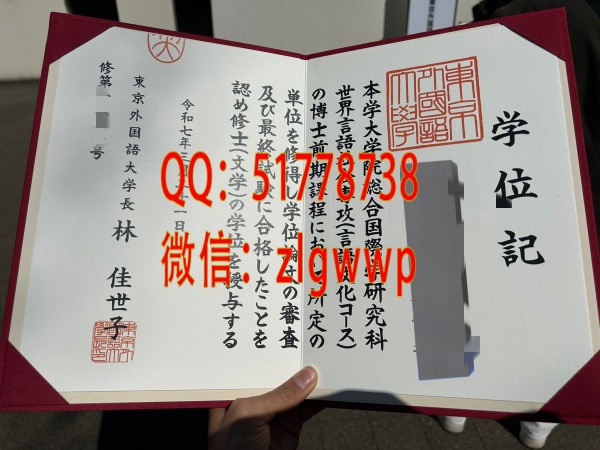 学位記
東京外国語大学
本学大学院総合国際学研究科
世界言語社会専攻(言語文化コース)
の博士前期課程において所定の
単位を修得し学位論文の審査
及び最終試験に合格したことを
認め修士(文学)の学位を授与する
令和七年三月 日
東京外国語大学長 林 佳世子
修第 号
QQ:51778738
微信:zlgwwp